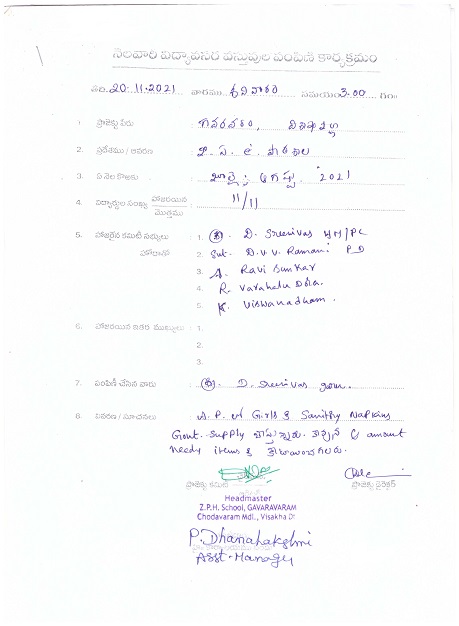 నెలవారి విద్యావసర వస్తువుల పంపిణీ కార్యక్రమం
తేది. 20.11.2021 వారము శనివారం సమయం 3.00 గం.
1. ప్రాజెక్టు పేరు గవరవరం, విశాఖపట్నం
2. ప్రదేశము / ఆవరణ
3. ఏ నెల కొరకు జూలై, ఆగష్టు 2021
4. విద్యార్థుల సంఖ్య హాజరయిన/మొత్తము 11/11
5. హాజరైన కమిటీ సభ్యులు 1. D. Sreenivas HM/PC
హోదాలు 2. Smt. D.V.V. Ramani P D
3. A. Ravi Sankar
4. R. Varahalu Dora.
5. K. Viswanadham.
6. హాజరయిన ఇతర ముఖ్యులు : 1.
2.
3.
7. పంపిణీ చేసిన వారు D. Sreenivas
8. వివరణ / సూచనలు Girls & Napkins
Govt. Supply amount
needy items &
ప్రాజెక్టు కమిటీ ప్రాజెక్టు డైరెక్టర్
Headmaster
Z.P.H. School, GAVARAVARAM
Chodavaram Mdl., Visakha Dt
P. Dhanalakshmi
Asst. Manager